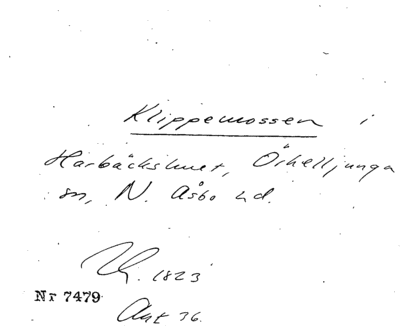 Klippemossen i
Harbäckshult, Örkelljunga
sn, N. Åsbo hd.
1823
Nr 7479
Akt 36.